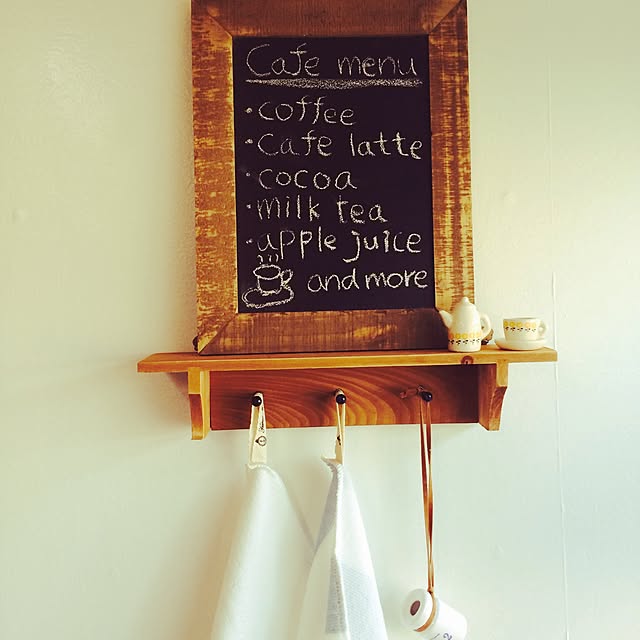 Cafe menu
・coffee
・Cafe latte
・cocoa
・milk tea
・apple juice
and more
2